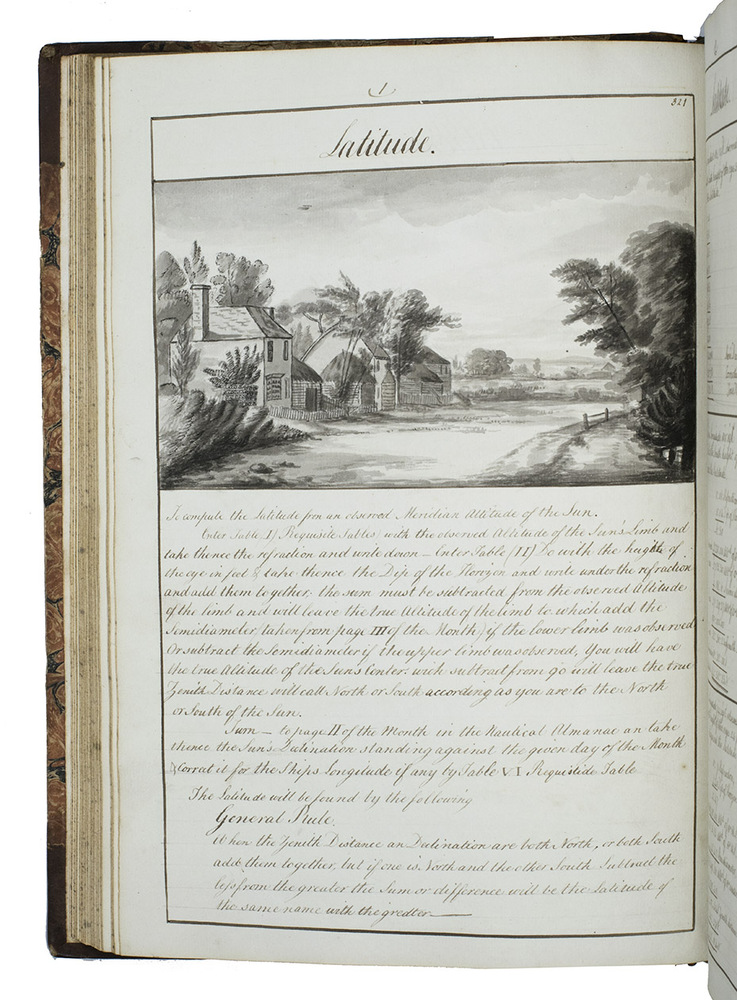 1
321
Latitude.
To compute the Latitude from an observed Meridian Altitude of the Sun.
Enter Table I) Requisite Tables) with the observed Altitude of the Sun's Limb and
take thence the refraction and write down – Enter Table (II) Do with the height of
the eye in feet & take thence the Dip of the Horizon and write under the refraction
and add them together, the sum must be subtracted from the observed Altitude
of the limb and will leave the true Altitude of the limb to which add the
Semidiameter (taken from page III of the Month) if the lower limb was observed
Or subtract the Semidiameter if the upper limb was observed, You will have
the true Altitude of the Sun's Center: wich subtract from 90 will leave the true
Zenith Distance will call North or South according as you are to the North
or South of the Sun.
Turn – to page II of the Month in the Nautical Almanac an take
thence the Sun's Declination standing against the given day of the Month
& Corrat it for the Ships Longitude if any by Table VI Requistide Table
The Latitude will be found by the following
General Rule.
When the Zenith Distance an Declination are both North, or both South
add them together, but if one is North and the other South Subtract the
less from the greater the Sum or difference will be the Latitude of
the same name with the greater